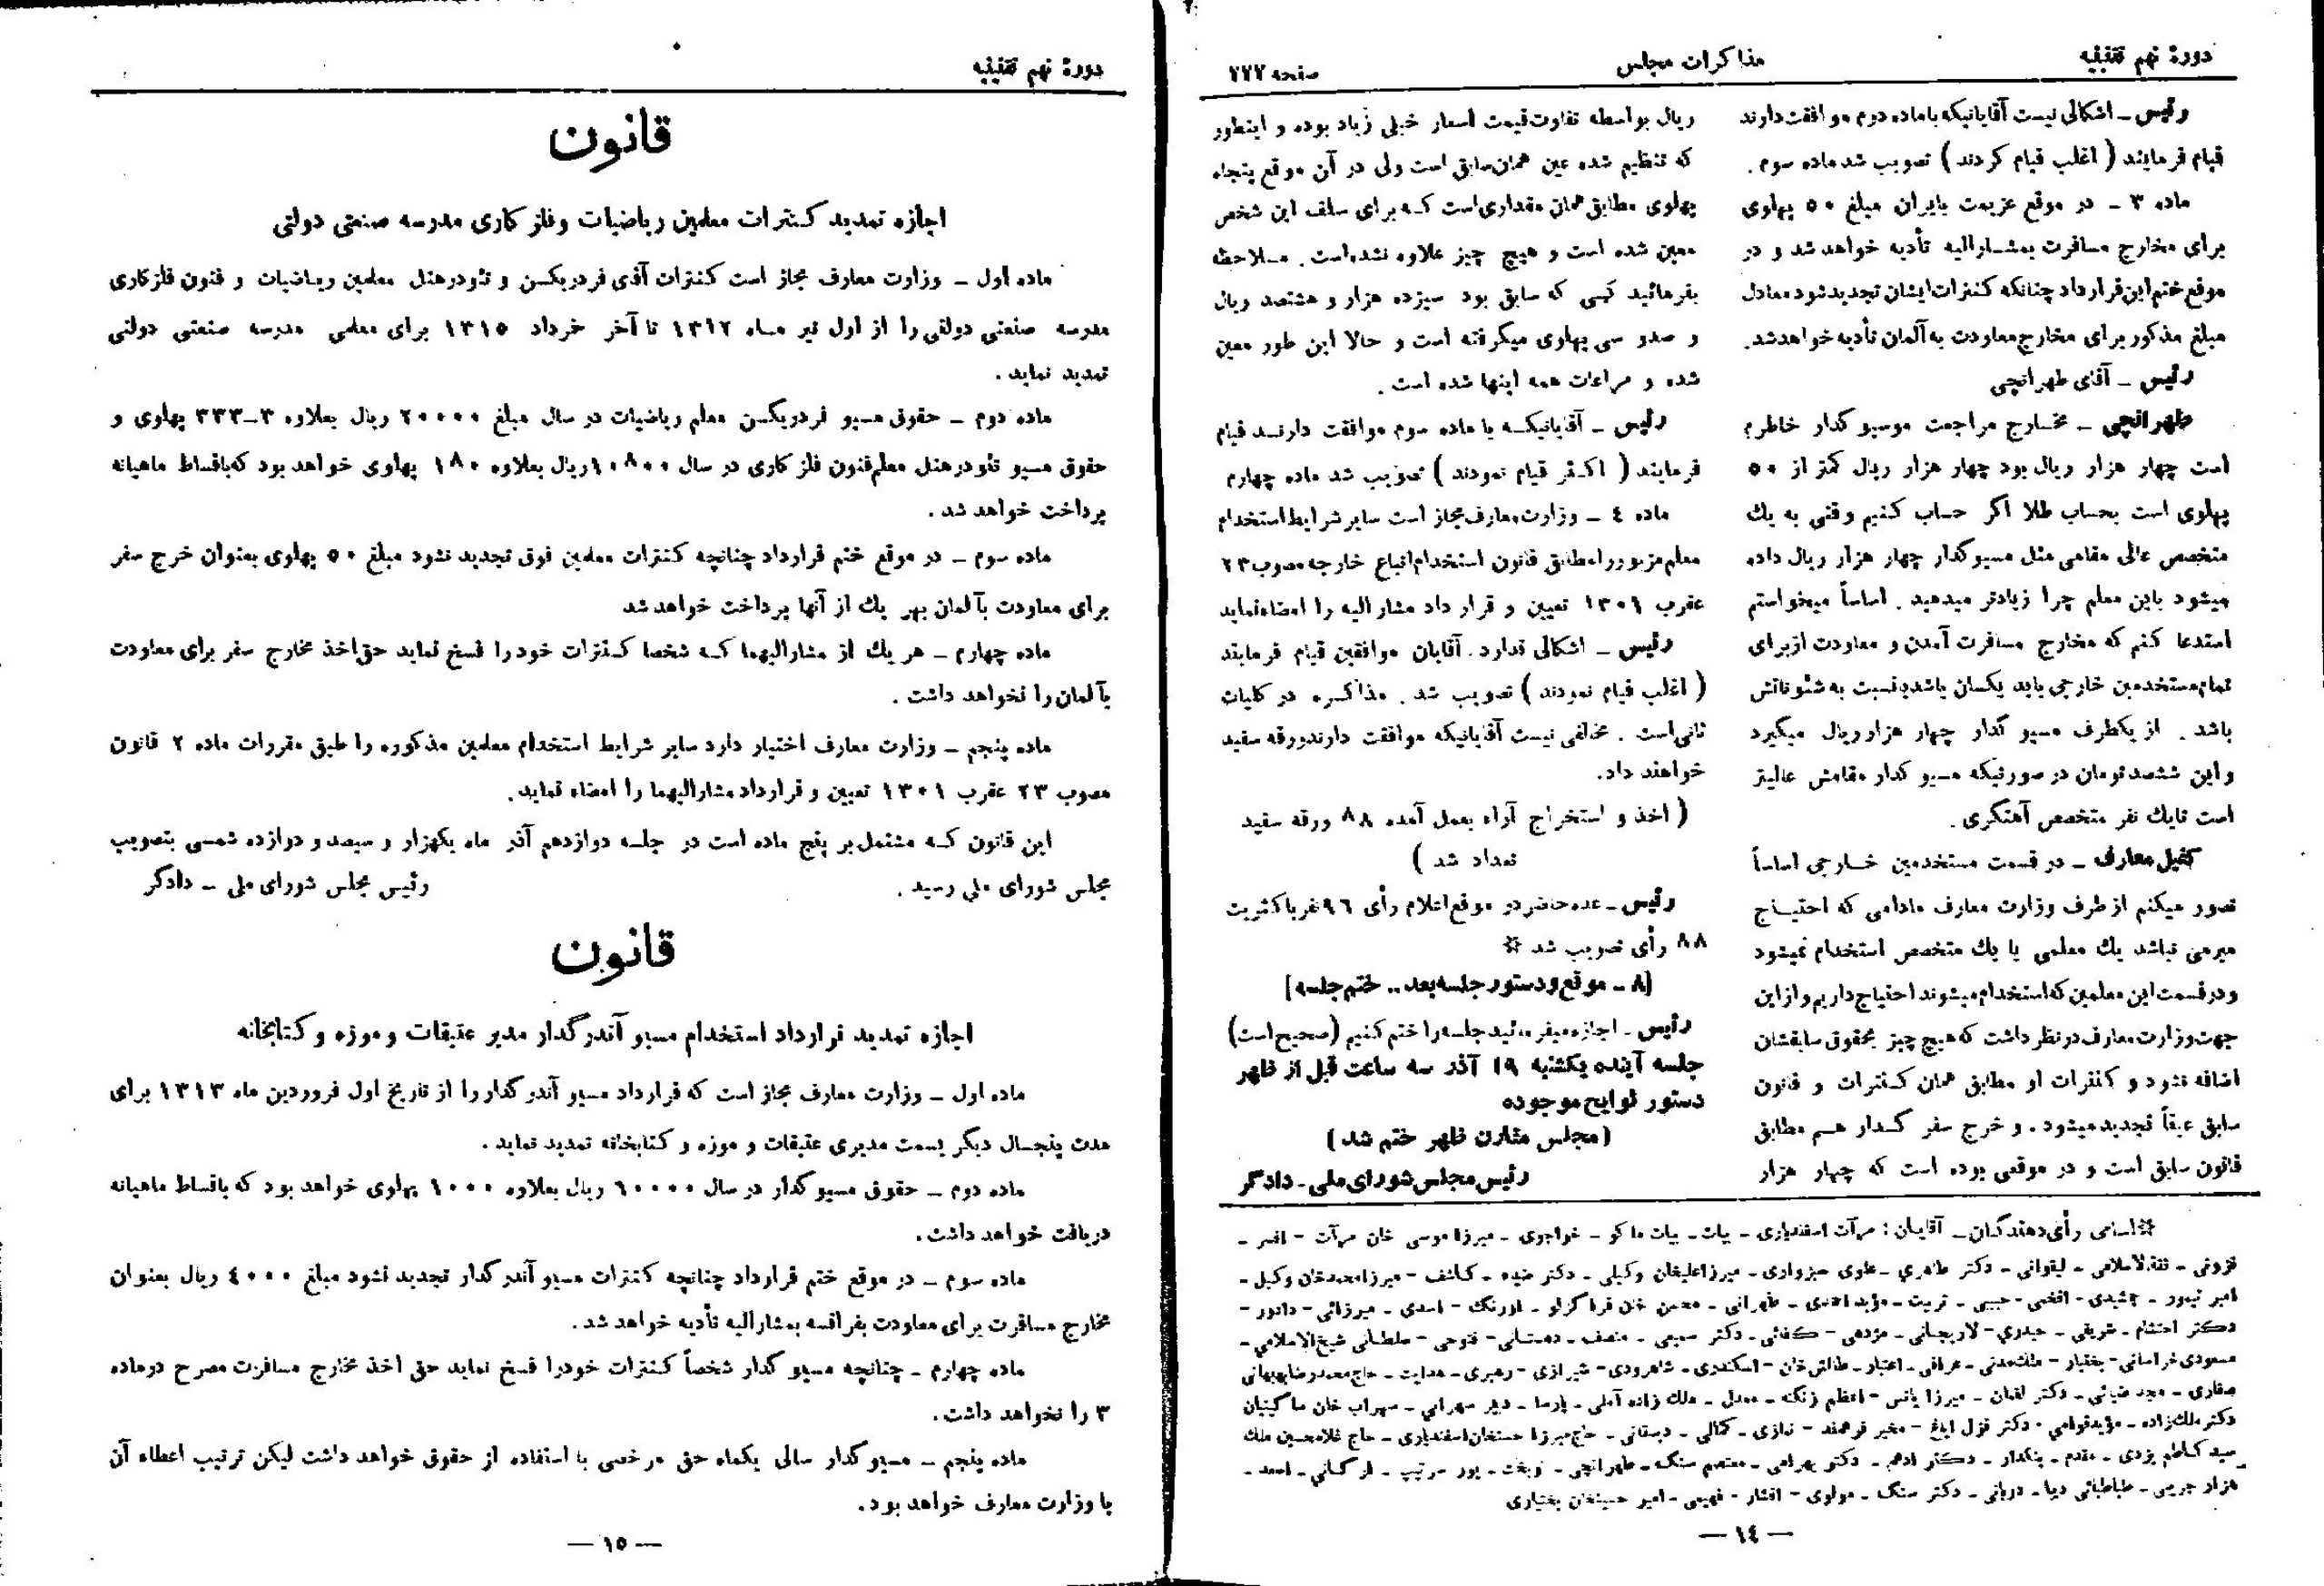 دورهٔ نهم تقنینیه
مذاکرات مجلس
صفحه ۲۲۲
رئیس ـ اشکالی نیست آقایانیکه باماده دوم موافقت دارند
قیام فرمایند ( اغلب قیام کردند ) تصویب شد ماده سوم .
ماده ۳ ـ در موقع عزیمت بایران مبلغ ۵۰ پهلوی
برای مخارج مسافرت بمشارالیه تأدیه خواهد شد و در
موقع ختم این قرارداد چنانکه کنترات ایشان تجدید نشود معادل
مبلغ مذکور برای مخارج معاودت به آلمان تأدیه خواهد شد.
رئیس ـ آقای طهرانچی
طهرانچی ـ مخارج مراجعت موسیو کدار خاطرم
است چهار هزار ریال بود چهار هزار ریال کمتر از ۵۰
پهلوی است بحساب طلا اگر حساب کنیم وقتی به یك
متخصص عالی مقامی مثل مسیو کدار چهار هزار ریال داده
میشود باین معلم چرا زیادتر میدهید . اساساً میخواستم
استدعا کنم که مخارج مسافرت آمدن و معاودت از برای
تمام مستخدمین خارجی باید یکسان باشد بنسبت به شئوناتش
باشد . از یکطرف مسیو کدار چهار هزار ریال میگیرد
و این ششصد تومان در صورتیکه مسیو کدار مقامش عالیتر
است تا یك نفر متخصص آهنگری .
کفیل معارف ـ در قسمت مستخدمین خارجی اساساً
تصور میکنم از طرف وزارت معارف مادامی که احتیاج
مبرمی نباشد یك معلمی یا یك متخصص استخدام نمیشود
و در قسمت این معلمین که استخدام میشوند احتیاج داریم و از این
جهت وزارت معارف در نظر داشت که هیچ چیز بحقوق سابقشان
اضافه نشود و کنترات او مطابق همان کنترات و قانون
سابق عیناً تجدید میشود . و خرج سفر کدار هم مطابق
قانون سابق است و در موقعی بوده است که چهار هزار
ریال بواسطه تفاوت قیمت اسعار خیلی زیاد بوده و اینطور
که تنظیم شده عین همان سابق است ولی در آن موقع پنجاه
پهلوی مطابق همان مقداری است که برای سلف این شخص
معین شده است و هیچ چیز علاوه نشده است . ملاحظه
بفرمائید کسی که سابق بود سیزده هزار و هشتصد ریال
و صد و سی پهلوی میگرفته است و حالا این طور معین
شده و مراعات همه اینها شده است .
رئیس ـ آقایانیکه با ماده سوم موافقت دارند قیام
فرمایند ( اکثر قیام نمودند ) تصویب شد ماده چهارم
ماده ٤ ـ وزارت معارف مجاز است سایر شرایط استخدام
معلم مزبور را مطابق قانون استخدام اتباع خارجه مصوب ۲۳
عقرب ۱۳۰۱ تعیین و قرار داد مشارالیه را امضاء نماید
رئیس ـ اشکالی ندارد . آقایان موافقین قیام فرمایند
( اغلب قیام نمودند ) تصویب شد . مذاکره در کلیات
ثانی است . مخالفی نیست آقایانیکه موافقت دارند ورقه سفید
خواهند داد.
( اخذ و استخراج آراء بعمل آمده ۸۸ ورقه سفید
تعداد شد )
رئیس ـ عده حاضر در موقع اعلام رأی ۹۶ نفر باکثریت
۸۸ رأی تصویب شد *
[۸ ـ موقع و دستور جلسه بعد .. ختم جلسه]
رئیس ـ اجازه میفرمائید جلسه را ختم کنیم (صحیح است)
جلسه آینده یکشنبه ۱۹ آذر سه ساعت قبل از ظهر
دستور لوایح موجوده
(مجلس مقارن ظهر ختم شد)
رئیس مجلس شورای ملی ـ دادگر
* اسامی رأی دهندگان ـ آقایان : مرآت اسفندیاری ـ بیات ـ بیات ماکو ـ خواجوی ـ میرزا موسی خان مرآت ـ افسر ـ
قزونی ـ ثقةالاسلامی ـ لیقوانی ـ دکتر طاهری ـ علوی سبزواری ـ میرزا علیخان وکیلی ـ دکتر ضیاء ـ کاشف ـ میرزا محمدخان وکیل ـ
امیر تیمور ـ جمشیدی ـ افخمی ـ حبیبی ـ تربیت ـ مؤید احمدی ـ طهرانی ـ محسن خان قراگزلو ـ اورنگ ـ اسدی ـ میرزائی ـ داور ـ
دکتر احتشام ـ شریفی ـ حیدری ـ لاریجانی ـ مژدهی ـ کفائی ـ دکتر سمیعی ـ منصف ـ دهستانی ـ فتوحی ـ سلطانی شیخ‌الاسلامی ـ
مسعودی خراسانی ـ بختیار ـ ملك مدنی ـ عراقی ـ اعتبار ـ طالش خان ـ اسکندری ـ شاهرودی ـ شیرازی ـ رهبری ـ هدایت ـ حاج محمدرضا بهبهانی
صفاری ـ مجد ضیائی ـ دکتر لقمان ـ میرزا یانس ـ اعظم زنگنه ـ معدل ـ ملك زاده آملی ـ پارسا ـ دبیر سهرابی ـ سهراب خان ساگینیان
دکتر ملك زاده ـ مؤید قوامی ـ دکتر قزل ایاغ ـ مخبر فرهمند ـ نمازی ـ کمالی ـ دبستانی ـ حاج میرزا حسنخان اسفندیاری ـ حاج غلامحسین ملك
سید کاظم یزدی ـ مقدم ـ بنکدار ـ دکتر ادهم ـ دکتر بهرامی ـ معتصم سنگ ـ طهرانچی ـ نوبخت ـ پور سرتیپ ـ لرکانی ـ اسعد ـ
هزار جریبی ـ طباطبائی دیبا ـ دربانی ـ دکتر سنگ ـ مولوی ـ افشار ـ فهیمی ـ امیر حسینخان بختیاری
— ۱٤ —
دورهٔ نهم تقنینیه
قانون
اجازه تمدید کنترات معلمین ریاضیات و فلز کاری مدرسه صنعتی دولتی
ماده اول ـ وزارت معارف مجاز است کنترات آقای فردریکسن و تئودرهنل معلمین ریاضیات و فنون فلزکاری
مدرسه صنعتی دولتی را از اول تیر ماه ۱۳۱۲ تا آخر خرداد ۱۳۱۵ برای معلمی مدرسه صنعتی دولتی
تمدید نماید .
ماده دوم ـ حقوق مسیو فردریکسن معلم ریاضیات در سال مبلغ ۲۰۰۰۰ ریال بعلاوه ۳ـ۳۳۳ پهلوی و
حقوق مسیو تئودرهنل معلم فنون فلز کاری در سال ۱۰۸۰۰ ریال بعلاوه ۱۸۰ پهلوی خواهد بود که باقساط ماهیانه
پرداخت خواهد شد .
ماده سوم ـ در موقع ختم قرارداد چنانچه کنترات معلمین فوق تجدید نشود مبلغ ۵۰ پهلوی بعنوان خرج سفر
برای معاودت بآلمان بهر یك از آنها پرداخت خواهد شد
ماده چهارم ـ هر یك از مشارالیهما که شخصا کنترات خود را فسخ نماید حق اخذ مخارج سفر برای معاودت
بآلمان را نخواهد داشت .
ماده پنجم ـ وزارت معارف اختیار دارد سایر شرایط استخدام معلمین مذکوره را طبق مقررات ماده ۲ قانون
مصوب ۲۳ عقرب ۱۳۰۱ تعیین و قرارداد مشارالیهما را امضاء نماید.
این قانون که مشتمل بر پنج ماده است در جلسه دوازدهم آذر ماه یکهزار و سیصد و دوازده شمسی بتصویب
مجلس شورای ملی رسید .
رئیس مجلس شورای ملی ـ دادگر
قانون
اجازه تمدید قرارداد استخدام مسیو آندر گدار مدیر عتیقات و موزه و کتابخانه
ماده اول ـ وزارت معارف مجاز است که قرارداد مسیو آندر گدار را از تاریخ اول فروردین ماه ۱۳۱۳ برای
مدت پنجسال دیگر بسمت مدیری عتیقات و موزه و کتابخانه تمدید نماید .
ماده دوم ـ حقوق مسیو گدار در سال ۶۰۰۰۰ ریال بعلاوه ۱۰۰۰ پهلوی خواهد بود که باقساط ماهیانه
دریافت خواهد داشت.
ماده سوم ـ در موقع ختم قرارداد چنانچه کنترات مسیو آندر گدار تجدید نشود مبلغ ٤۰۰۰ ریال بعنوان
مخارج مسافرت برای معاودت بفرانسه بمشارالیه تأدیه خواهد شد .
ماده چهارم ـ چنانچه مسیو گدار شخصاً کنترات خودرا فسخ نماید حق اخذ مخارج مسافرت مصرح درماده
۳ را نخواهد داشت.
ماده پنجم ـ مسیو گدار سالی یکماه حق مرخصی با استفاده از حقوق خواهد داشت لیکن ترتیب اعطاء آن
با وزارت معارف خواهد بود.
— ۱۵ —